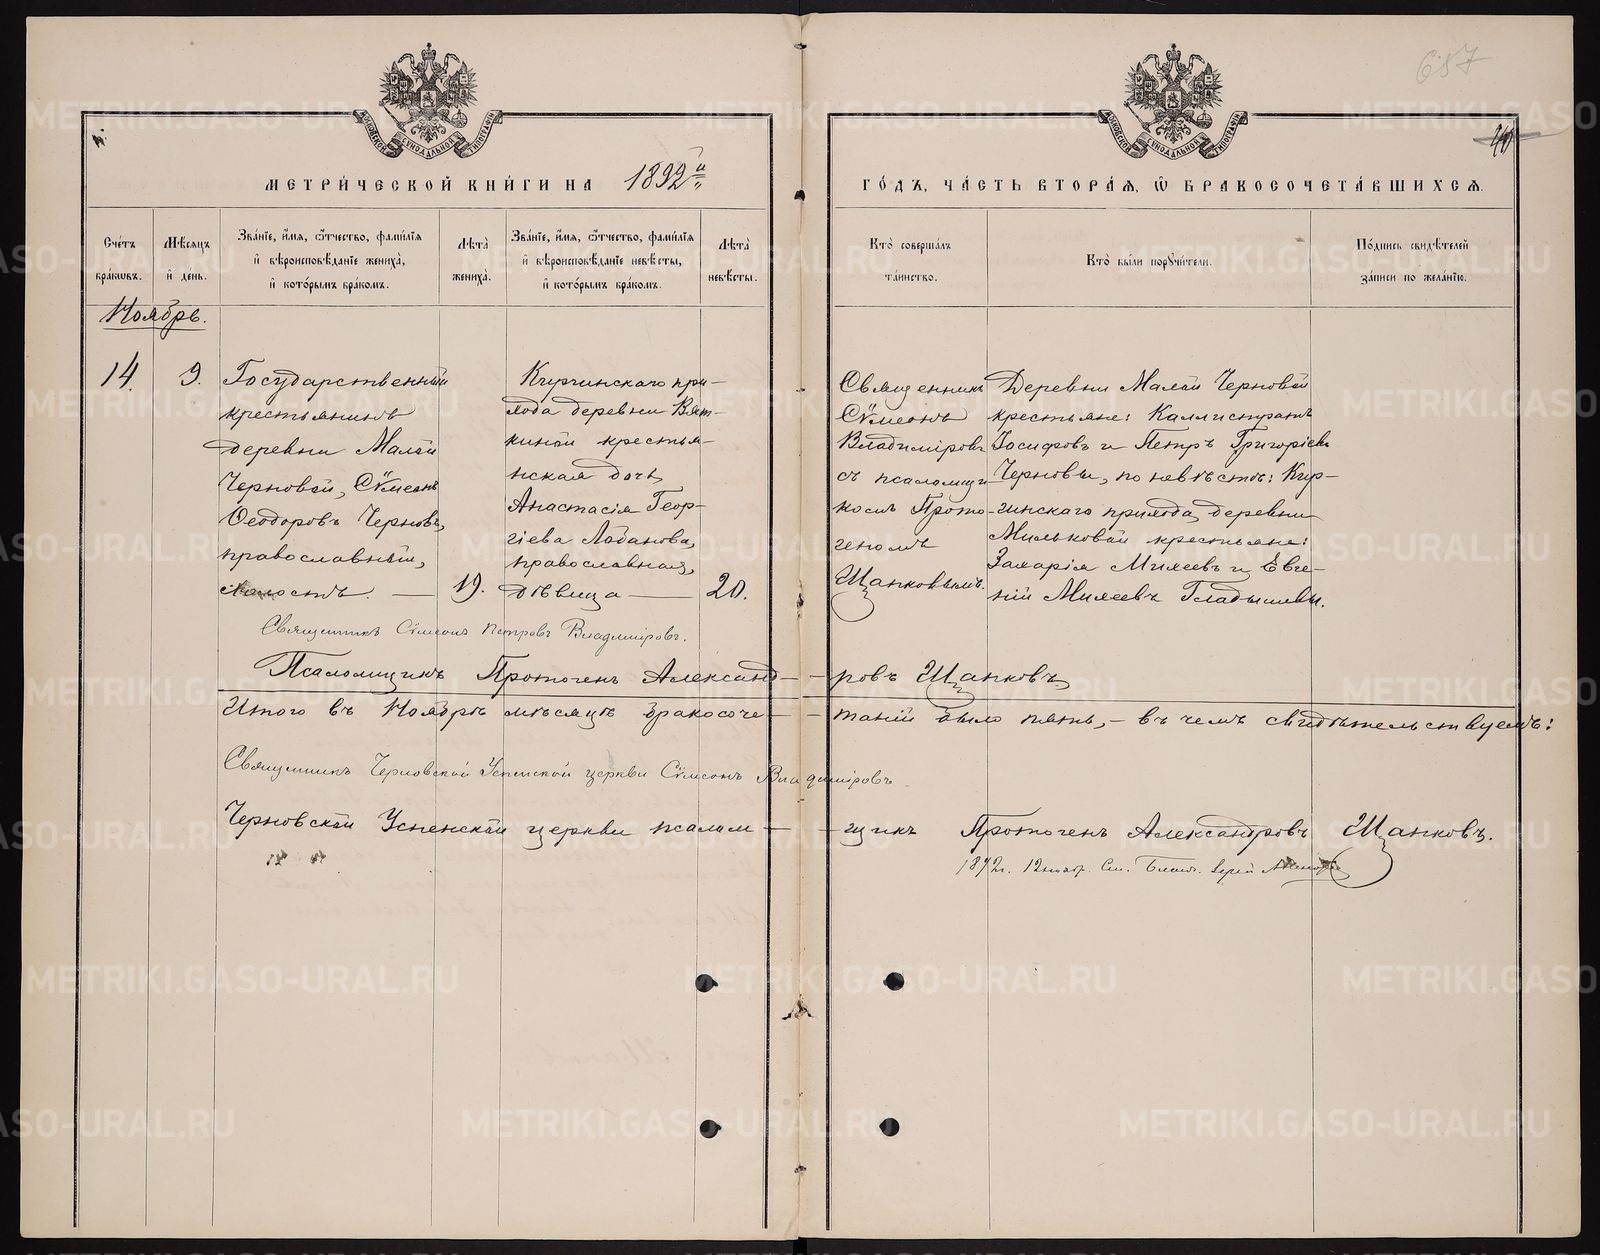 657
40
МЕТРИ́ЧЕСКОЙ КНИ́ГИ НА 1892й
ГО́ДЪ, ЧА́СТЬ ВТОРА́Я, Ѿ БРАКОСОЧЕТА́ВШИХСЯ.
МОСКОВСКОЙ СѴНОДАЛЬНОЙ ТИПОГРАФІИ
МОСКОВСКОЙ СѴНОДАЛЬНОЙ ТИПОГРАФІИ
Сче́тъ бра́кѡвъ.
Мѣ́сяцъ и҆ де́нь.
Зва́нїе, и҆́мя, ѻ҆́тчество, фами́лїя и҆ вѣроисповѣ́данїе жениха̀, и҆ кото́рымъ бра́комъ.
Лѣ́та жениха̀.
Зва́нїе, и҆́мя, ѻ҆́тчество, фами́лїя и҆ вѣроисповѣ́данїе невѣ́сты, и҆ кото́рымъ бра́комъ.
Лѣ́та невѣ́сты.
Кто̀ соверша́лъ та́инство.
Кто̀ бы́ли порꙋчи́тели.
По́дпись свидѣ́телей за́писи по жела́нїю.
Ноябрь.
14.
9.
Государственный
крестьянинъ
деревни Малой
Черновой, Сѵмеонъ
Ѳеодоровъ Черновъ,
православный,
холостъ. —
19.
Киргинскаго при-
хода деревни Вят-
киной крестья-
нская дочь,
Анастасія Геор-
гіева Лобанова,
православная,
дѣвица —
20.
Священникъ
Сѵмеонъ
Владиміровъ
съ псаломщи-
комъ Прото-
геномъ
Щапковымъ.
Деревни Малой Черновой
крестьяне: Каллистратъ
Іосифовъ и Петръ Григоріевъ
Черновы, по невѣстѣ: Кир-
гинскаго прихода, деревни
Мильковой крестьяне:
Захарія Михеевъ и Евге-
ній Михеевъ Гладышевы.
Священникъ Сѵмеонъ Петровъ Владиміровъ.
Псаломщикъ Протогенъ Александ- -ровъ Щапковъ.
Итого въ Ноябрѣ мѣсяцѣ бракосоче- -таній было пять, - въ чемъ свидѣтельствуемъ:
Священникъ Черновской Успенской церкви Сѵмеонъ Владиміровъ
Черновской Успенской церкви псалом- -щикъ Протогенъ Александровъ Щапковъ.
1892г. 12 нояб.
METRIKI.GASO-URAL.RU